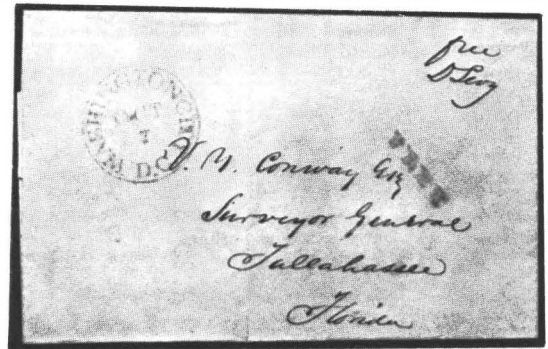 free
D Levy
WASHINGTON CITY
OCT
7
D.C.
V. Y. Conway Esq
Surveyor General
Tallahassee
Florida
FREE